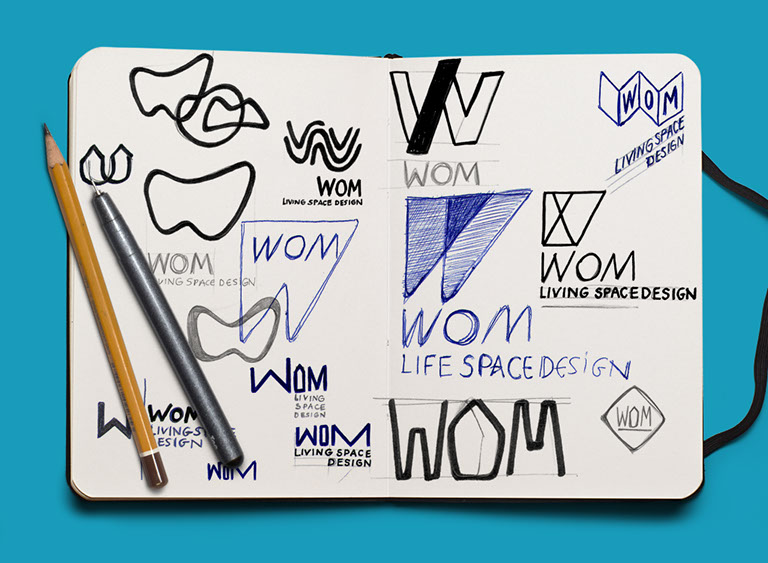 WOM
LIVING SPACE DESIGN
WOM
LIVING SPACE DESIGN
WOM
WOM
LIVING
SPACE
DESIGN
W
WOM
LIVING SPACE
DESIGN
WOM
LIVING SPACE
DESIGN
WOM
W
WOM
WOM
LIVING SPACE
DESIGN
WOM
LIVING SPACE DESIGN
WOM
LIFE SPACE DESIGN
WOM
WOM